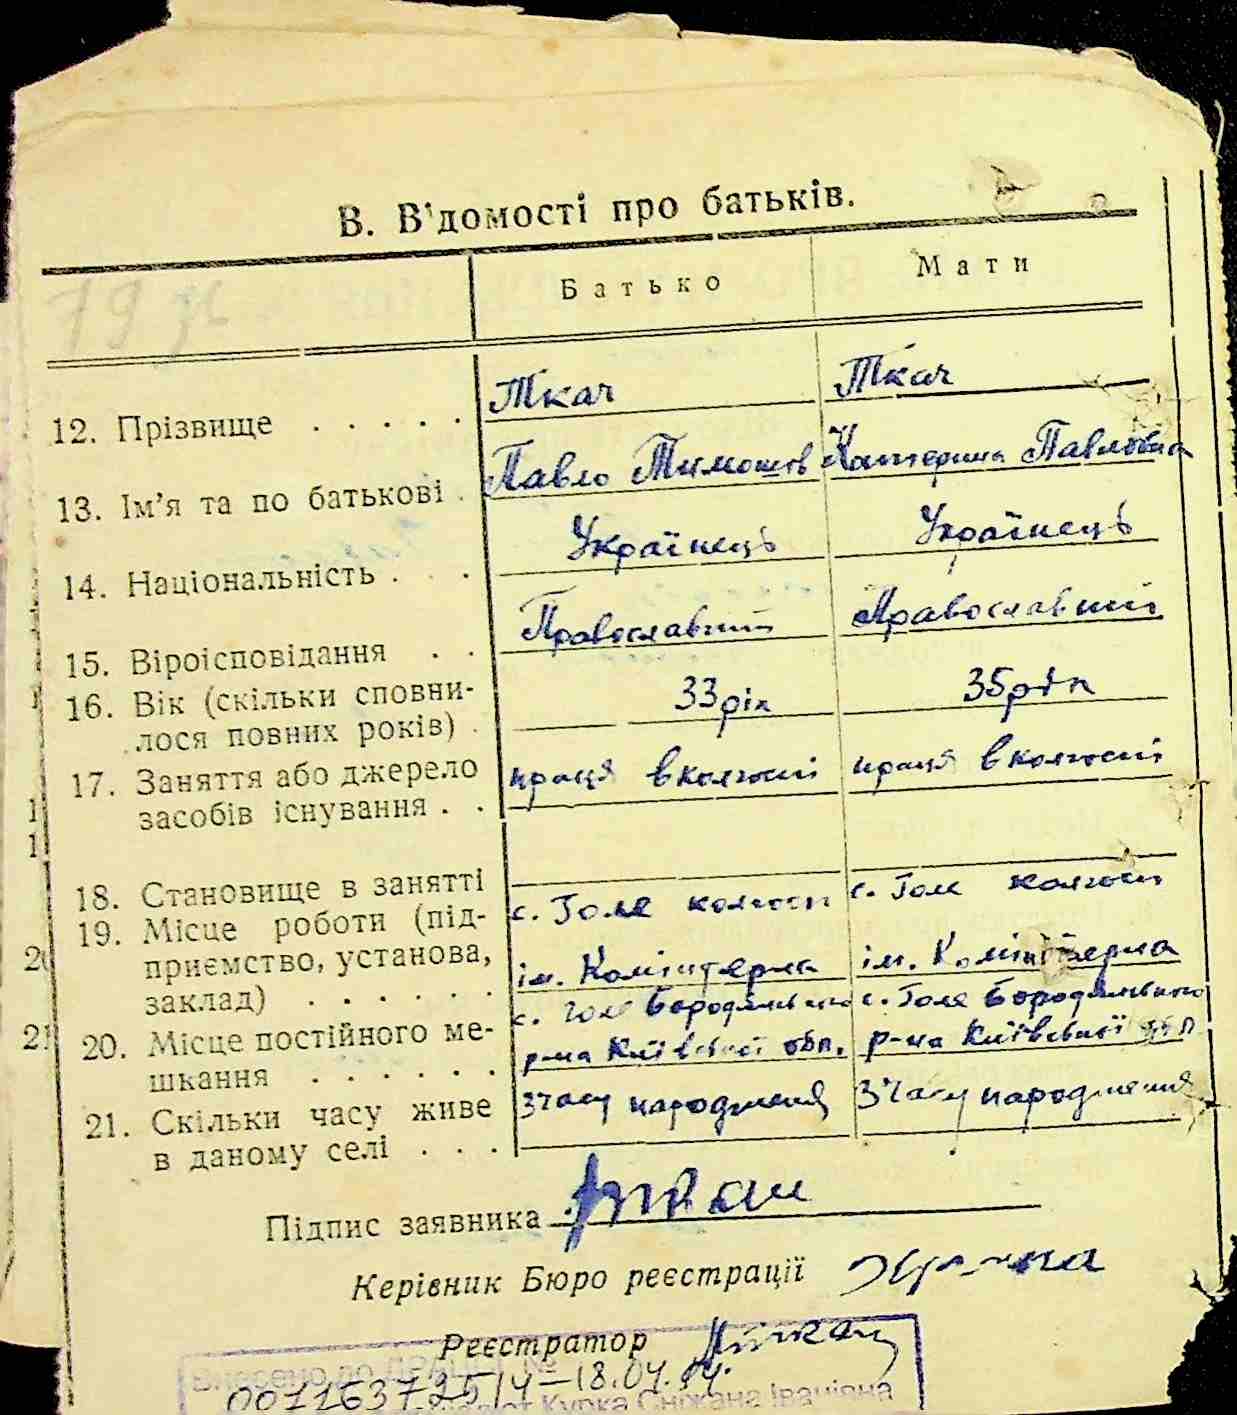 В. Відомості про батьків.
Батько Мати
12. Прізвище . . . . . Ткач Ткач
13. Ім'я та по батькові . Павло Тимошів Катерина Павловна
14. Національність . . . Українець Українець
15. Віроісповідання . . Православний Православний
16. Вік (скільки сповни- 33 рік 35 рік
лося повних років) .
17. Заняття або джерело праця в колгоспі праця в колгоспі
засобів існування . .
18. Становище в занятті
19. Місце роботи (під- с. Голе колгосп с. Голе колгосп
приємство, установа, ім. Комінтерна ім. Комінтерна
заклад) . . . . . .
20. Місце постійного ме- с. Голе Бородянського с. Голе Бородянського
шкання . . . . . . р-на Київської обл. р-на Київської обл.
21. Скільки часу живе З часу народження З часу народження
в даному селі . . .
Підпис заявника
Керівник Бюро реєстрації
Реєстратор
Внесено до №
00116372514 – 18.04.
Курка Сніжана Іванівна